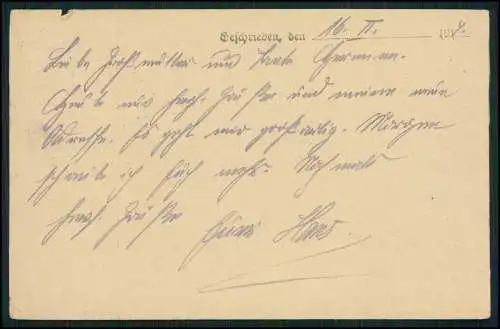 Geschrieben, den 16. II. 191
Liebe Großmutter und Tante Hermine.
Heute nur herzl. Grüße und meine neue
Adresse. Es geht mir großartig. Morgen
schreibe ich Euch mehr. Nochmals
herzl. Grüße
Euer Hans